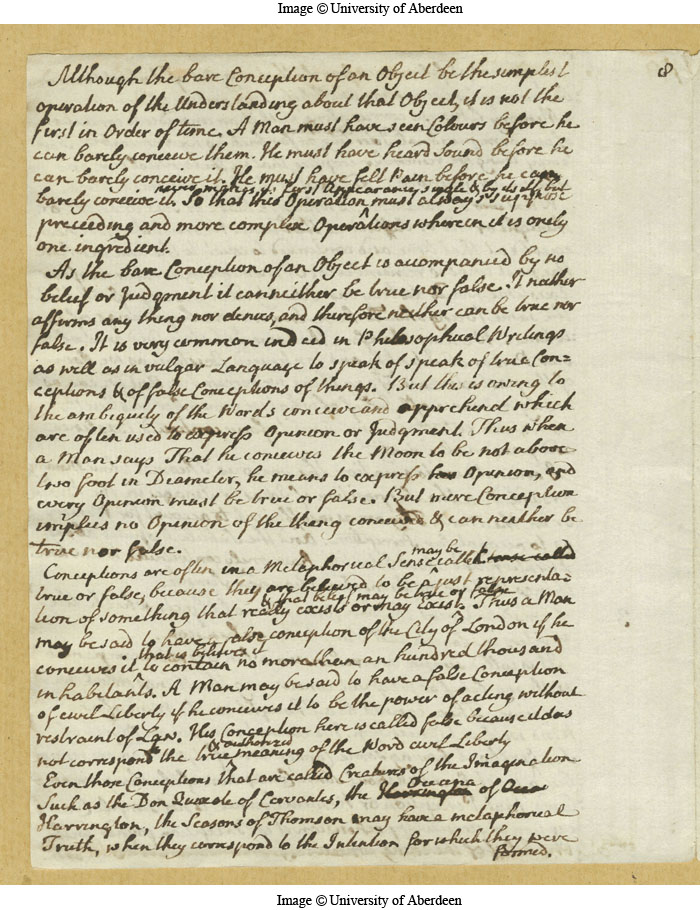 Image © University of Aberdeen
8
Although the bare Conception of an Object be the simplest
operation of the Understanding about that Object, it is not the
first in Order of time. A Man must have seen Colours before he
can barely conceive them. He must have heard Sound before he
can barely conceive it. He must have felt Pain before he can
never makes its first Appearance single & by itself, but
barely conceive it. So that this Operation must always suppose
preceeding and more complex Operations wherein it is onely
one ingredient.
As the bare Conception of an Object is accompanied by no
belief or Judgment it can neither be true nor false. It neither
affirms any thing nor denies, and therefore neither can be true nor
false. It is very common indeed in Philosophical Writings
as well as in vulgar Language to speak of speak of true Con=
ceptions & of false Conceptions of things. But this is owing to
the ambiguity of the Words conceive and apprehend which
are often used to express Opinion or Judgment. Thus when
a Man says That he conceives the Moon to be not above
two foot in Diameter, he means to express his Opinion, and
every Opinion must be true or false. But mere Conception
implies no Opinion of the thing conceived & can neither be
true nor false.
may be
Conceptions are often in a Metaphorical Sense called
true or false, because they are believed to be a just representa=
& that belief may be true or false
tion of something that really exists or may exist. Thus a Man
may be said to have a false conception of the City of London if he
that is believes it
conceives it to contain no more than an hundred thousand
inhabitants. A Man may be said to have a false Conception
of civil Liberty if he conceives it to be the power of acting without
restraint of Law. His Conception here is called false because it does
& authorized
not correspond to the true meaning of the Word civil Liberty
Even those Conceptions that are called Creatures of the Imagination
Oceana
Such as the Don Quixote of Cervantes, the Harrington of Ocea
Harrington, the Seasons of Thomson may have a metaphorical
Truth, when they correspond to the Intention for which they were
formed.
Image © University of Aberdeen